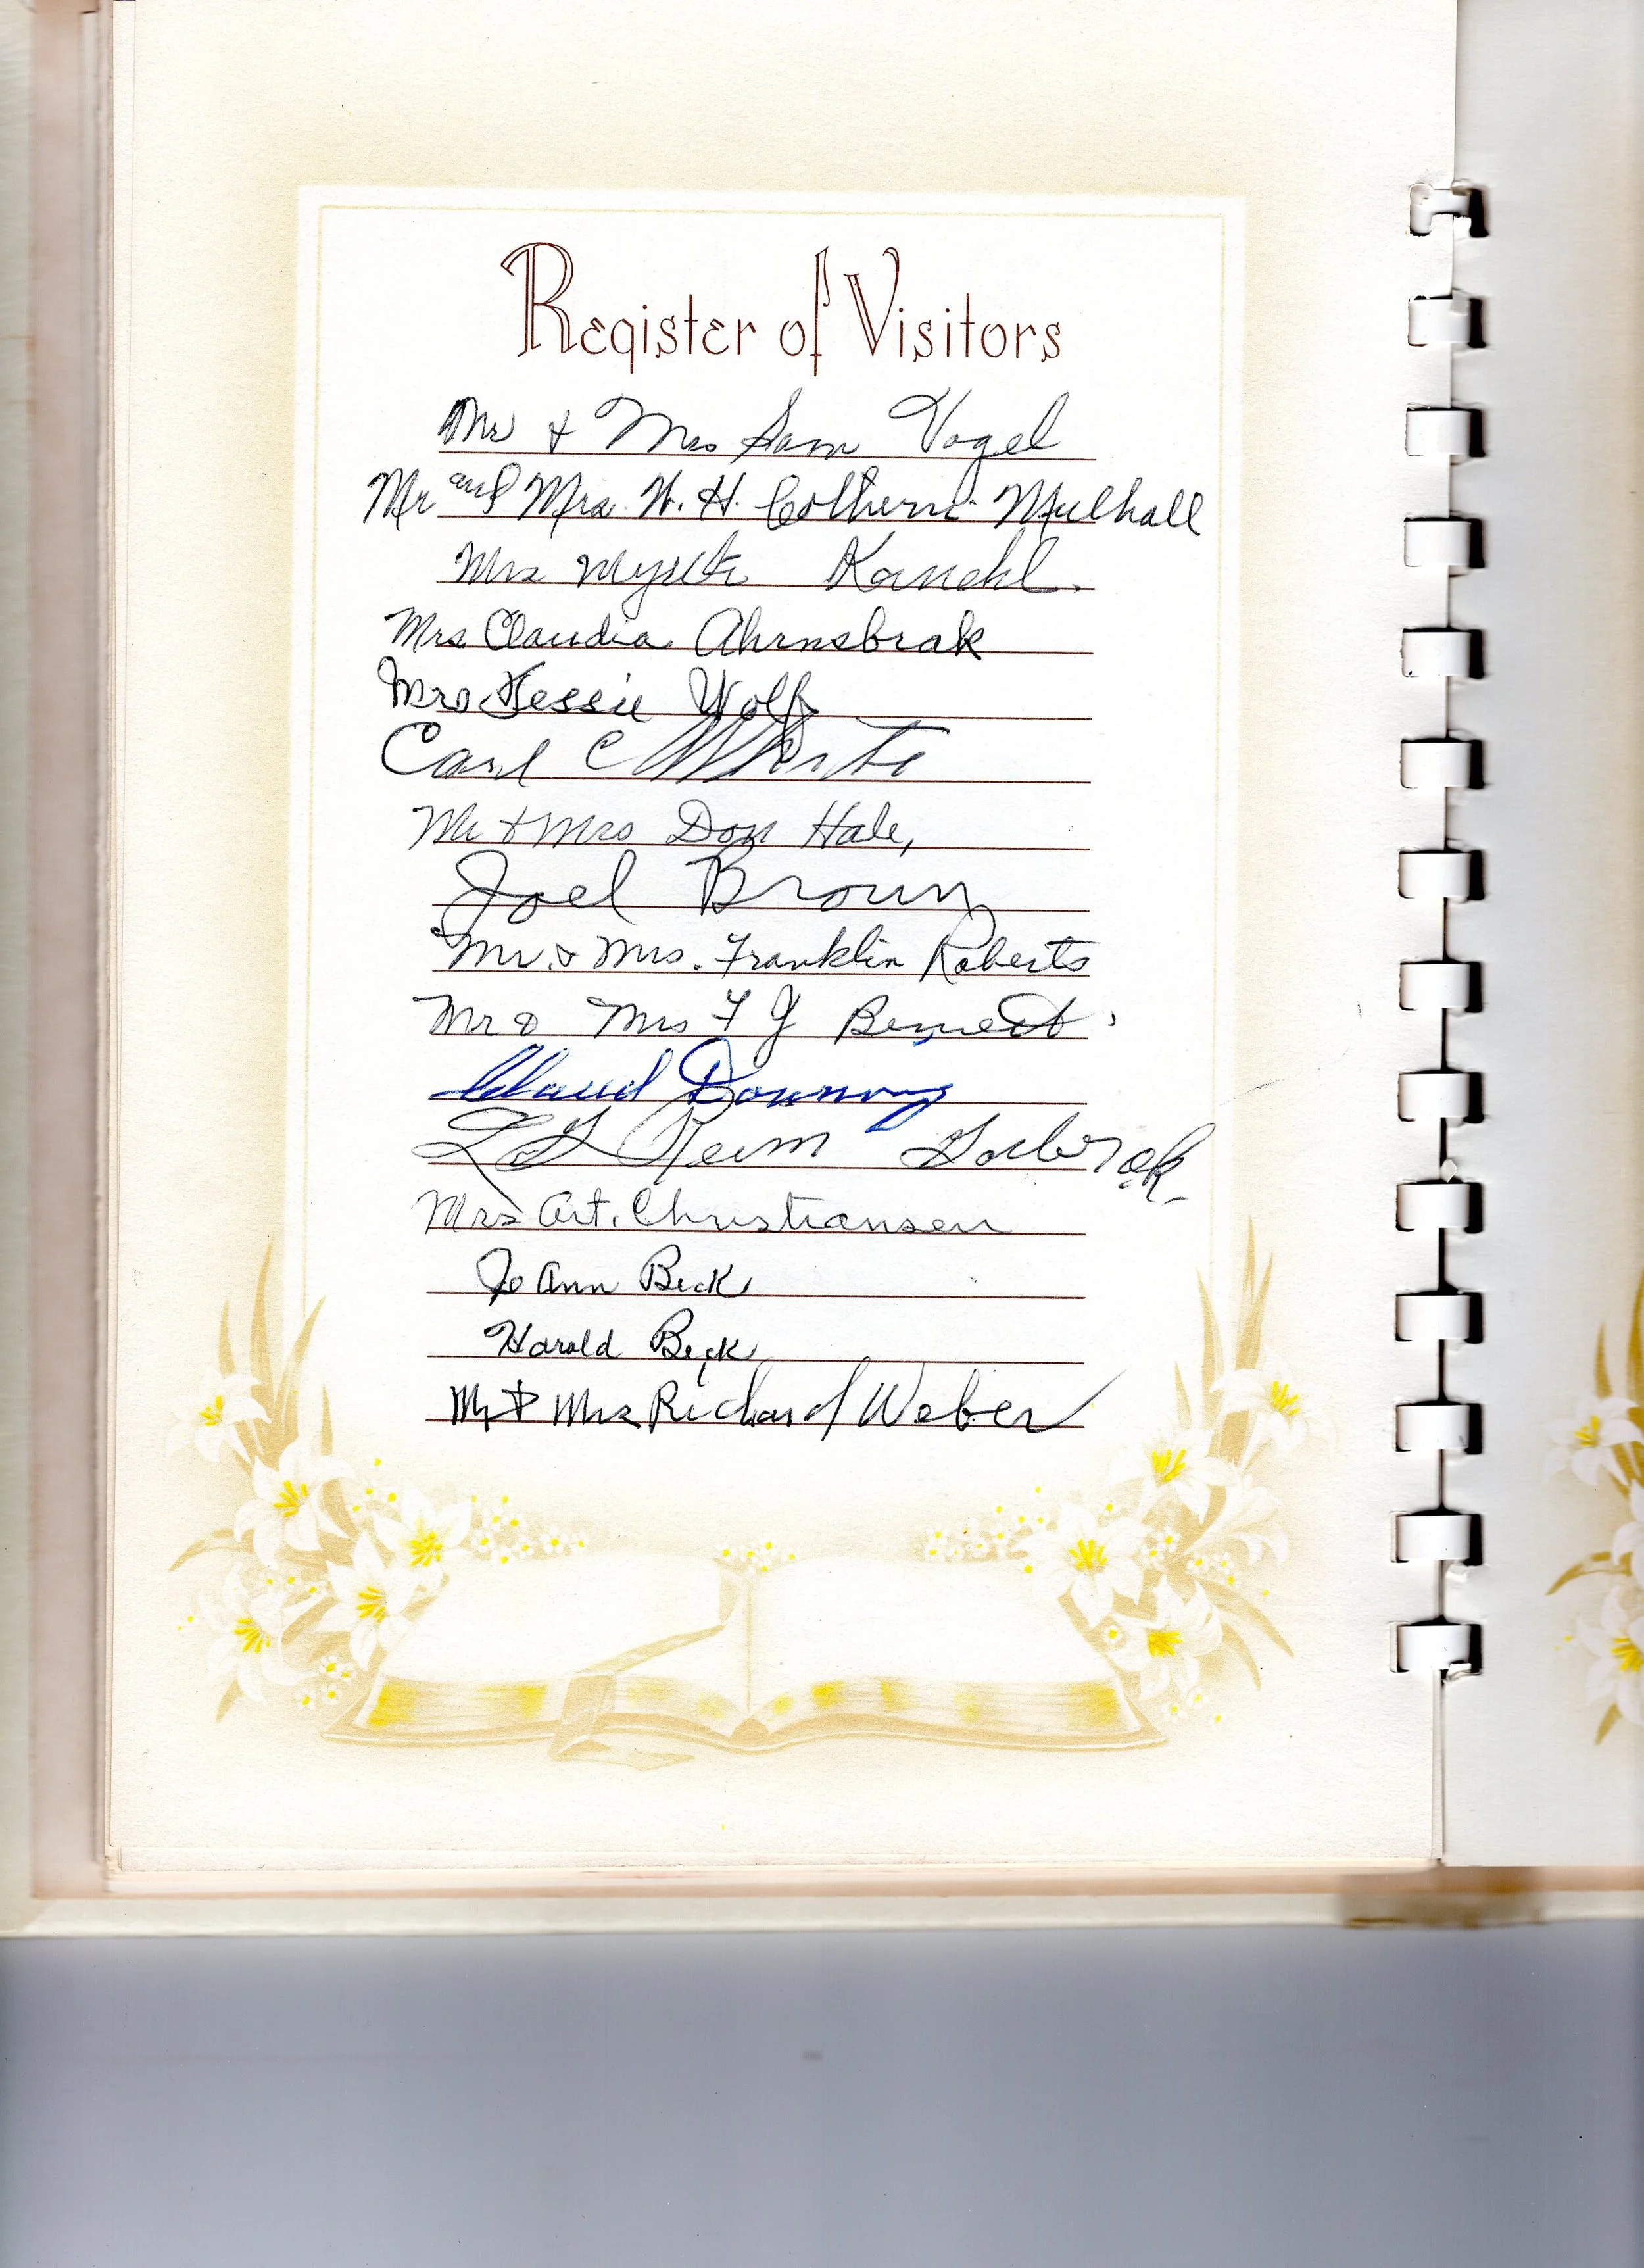 Register of Visitors
Mr & Mrs Sam Vogel
Mr and Mrs. W. H. Cothern. Mulhall
Mrs Myrtle Kandhl.
Mrs Claudia Ahrnsbrak
Mrs Jessie Wolf
Carl C White
Mr & Mrs Don Hale,
Joel Brown
Mr. & Mrs. Franklin Roberts
Mr & Mrs F J Bennett
Claud Downing
Keim
Mrs Art. Christiansen
Jo Ann Beck
Harold Beck
Mr & Mrs Richard Weber